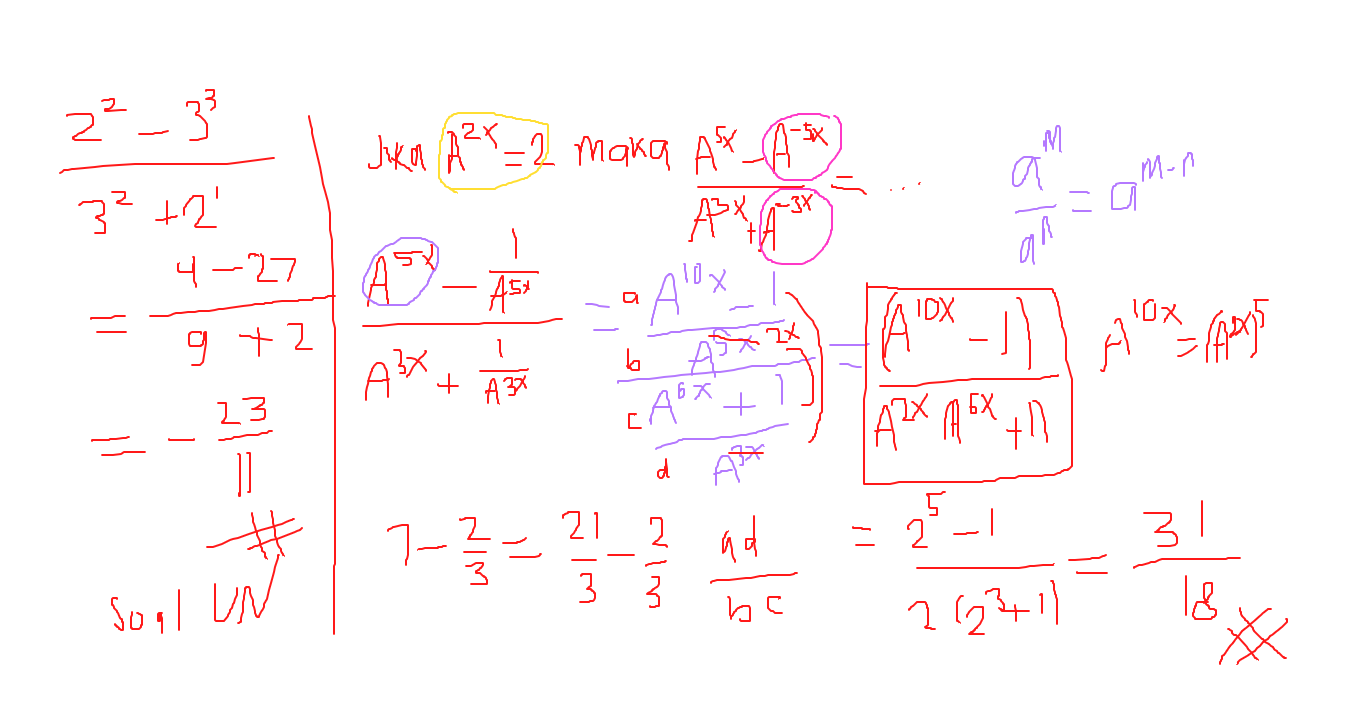 2² − 3³
3² + 2¹
= 4 − 27
9 + 2
= − 23
11
Soal UN
Jika A^2x = 2 maka A^5x − A^-5x = ...
A^3x + A^-3x
a^m = a^m-n
a^n
A^5x − 1
A^5x
A^3x + 1
A^3x
= a A^10x − 1
b A^5x 2x
c A^6x + 1
d A^3x
= (A^10x − 1)
A^2x (A^6x + 1)
A^10x = (A^2x)^5
7 − 2/3 = 21/3 − 2/3
ad
bc
= 2^5 − 1 = 31
2(2^3 + 1) 18